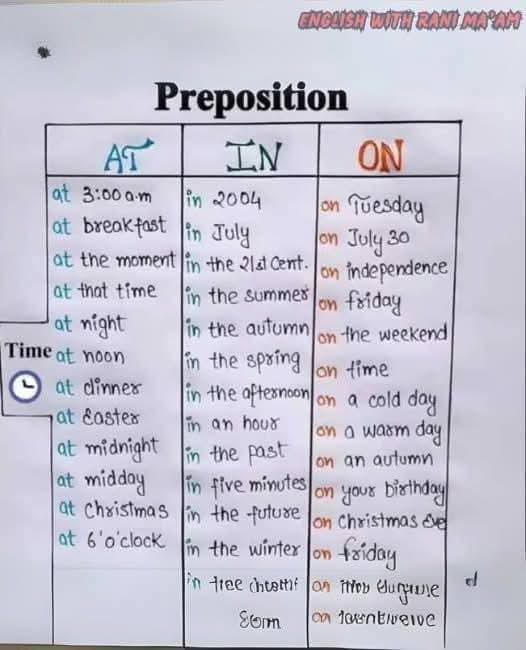 ENGLISH WITH RANI MA'AM
Preposition
Time
AT
at 3:00 a.m
at breakfast
at the moment
at that time
at night
at noon
at dinner
at Easter
at midnight
at midday
at christmas
at 6'o'clock
IN
in 2004
in July
in the 21st Cent.
in the summer
in the autumn
in the spring
in the afternoon
in an hour
in the past
in five minutes
in the future
in the winter
in
ON
on Tuesday
on July 30
on independence
on friday
on the weekend
on time
on a cold day
on a warm day
on an autumn
on your birthday
on christmas Eve
on friday
on
on